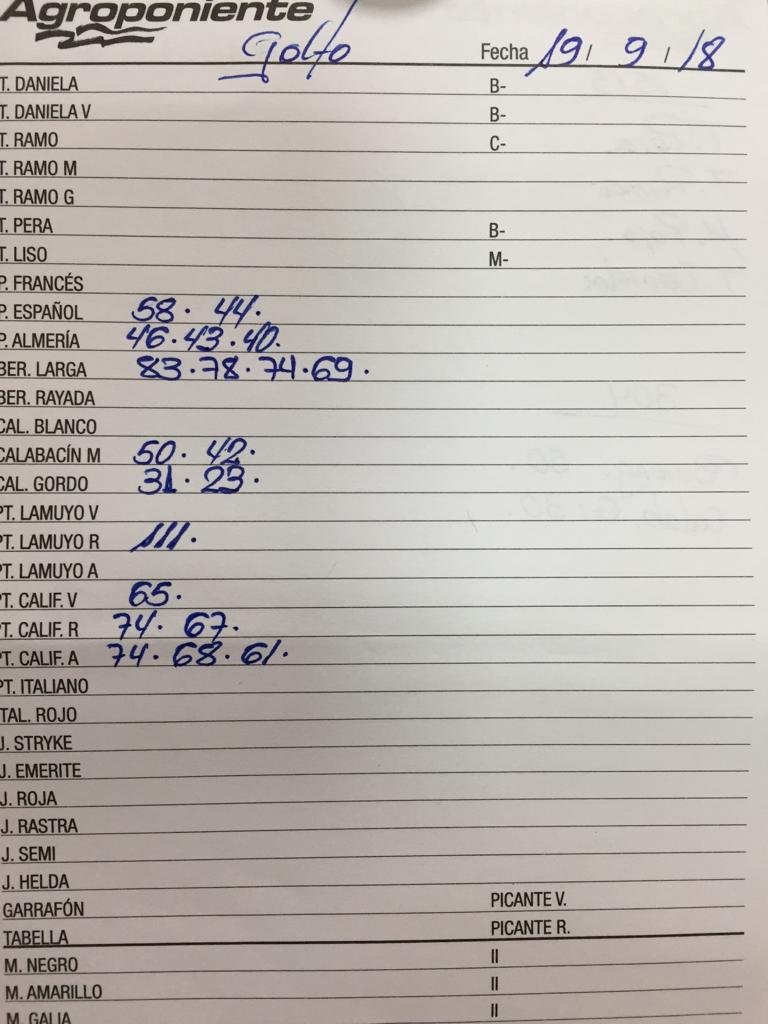 Agroponiente
Golfo Fecha 19 / 9 / 18
T. DANIELA B-
T. DANIELA V B-
T. RAMO C-
T. RAMO M
T. RAMO G
T. PERA B-
T. LISO M-
P. FRANCÉS
P. ESPAÑOL 58. 44.
P. ALMERÍA 46.43.40.
BER. LARGA 83.78.74.69.
BER. RAYADA
CAL. BLANCO
CALABACÍN M 50. 42.
CAL. GORDO 31. 23.
PT. LAMUYO V
PT. LAMUYO R 111.
PT. LAMUYO A
PT. CALIF. V 65.
PT. CALIF. R 74. 67.
PT. CALIF. A 74. 68. 61.
PT. ITALIANO
TAL. ROJO
J. STRYKE
J. EMERITE
J. ROJA
J. RASTRA
J. SEMI
J. HELDA
GARRAFÓN PICANTE V.
TABELLA PICANTE R.
M. NEGRO II
M. AMARILLO II
M. GALIA II